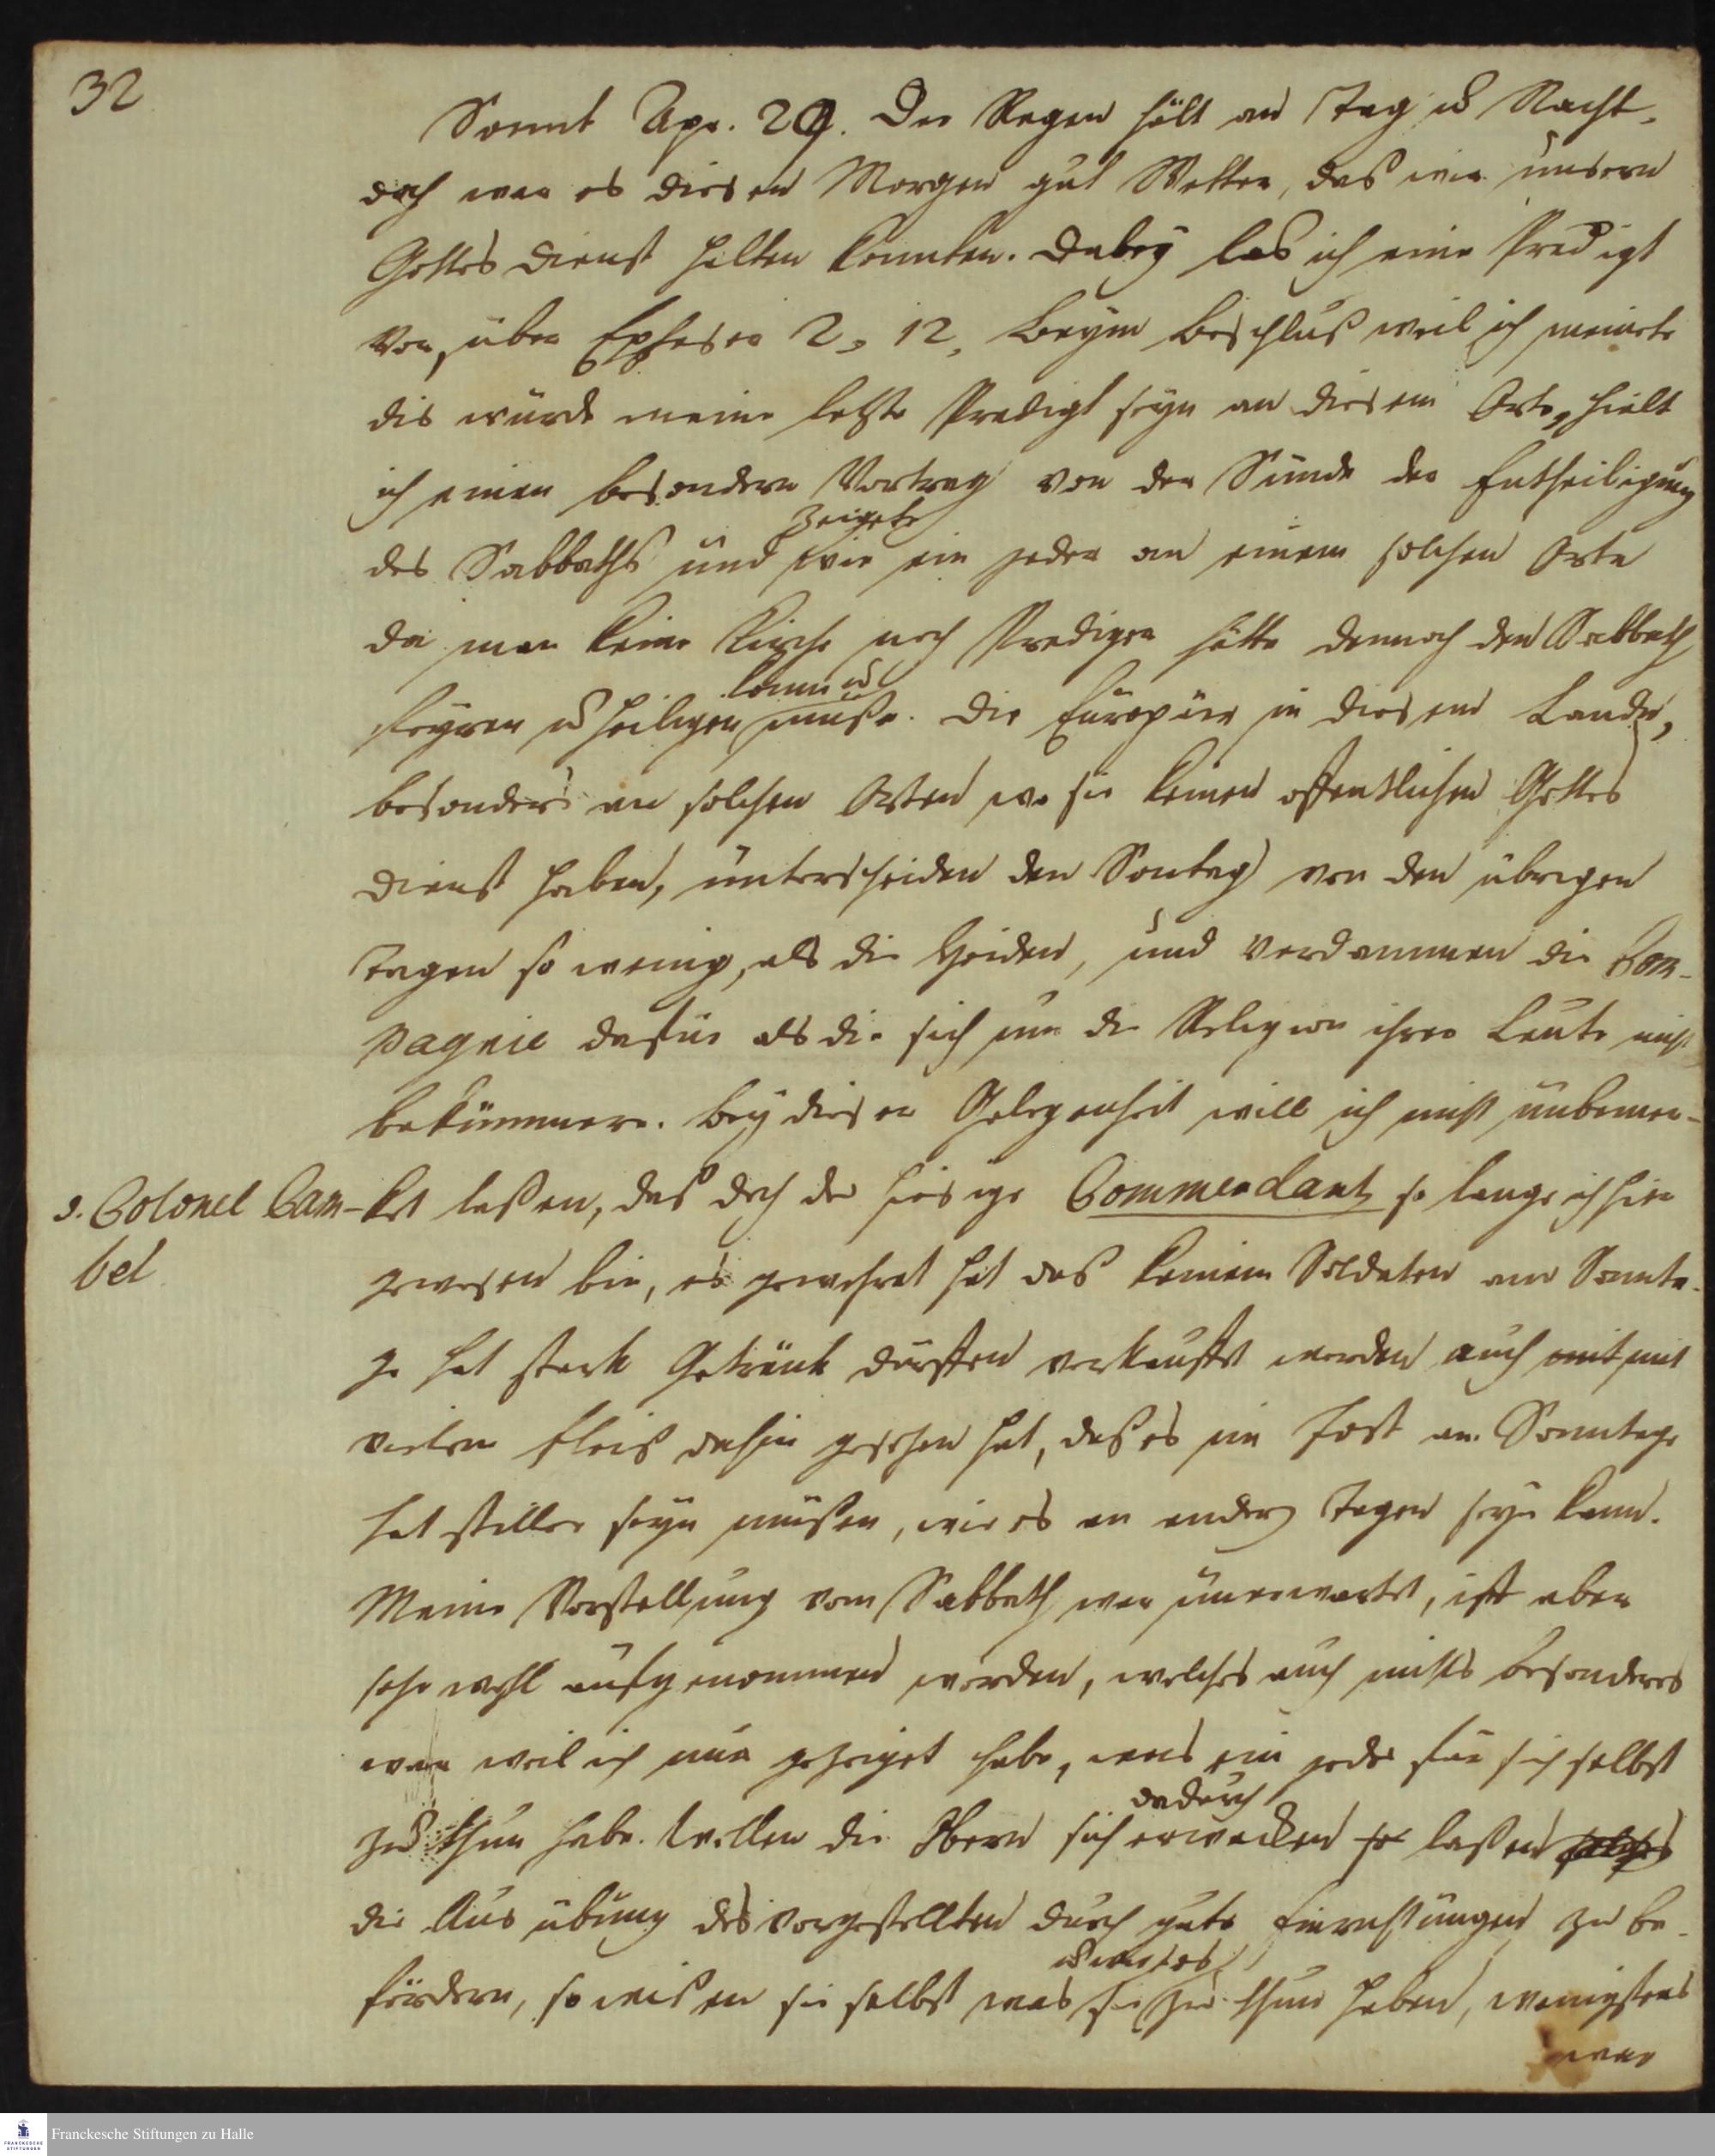 32
Sonnt Apr. 29. Der Regen hält an Tag u Nacht,
doch war es diesen Morgen gut Wetter, das wir unsern
Gottes dienst halten konnten. Dabey las ich eine Predigt
vor, über Epheser 2, 12, beym beschluß weil ich meinete
dis würde meine letzte Predigt seyn an diesem Orte, hielt
ich einen besondern Vortrag von der Sünde der Entheiligung
zeigete
des Sabbaths und wie ein jeder an einem solchen Orte
da man keine Kirche noch Prediger hätte dennoch den Sabbath
könne u
feyren u heiligen müße. Die Europäer in diesem Lande,
besonders an solchen Orten wo sie keinen offentlichen Gottes
dienst haben, unterscheiden den Sontag von den übrigen
Tagen so wenig, als die Heiden, und verdammen die Com-
pagnie dafür als die sich um die Religion ihrer Leute nicht
bekümmere. Bey dieser Gelegenheit will ich nicht unbemer-
s. Colonel Cam-
bel
ket laßen, daß doch der hiesige Commendant so lange ich hier
gewesen bin, es gewehret hat das keinem Soldaten am Sonnta-
ge hat stark Getränk dürffen verkaufft werden auch mit mit
vielem Fleis dahin gesehen hat, daß es im Fort am Sonntage
hat stiller seyn müßen, wie es an andern Tagen seyn kann.
Meine Vorstellung vom Sabbath war unerwartet, ist aber
sehr wohl aufgenommen worden, welches auch nichts besonderes
war weil ich nur gezeiget habe, was ein jeder für sich selbst
dadurch
zu thun habe. Wollen die Obern sich erwecken laßen
die Ausübung des vorgestellten durch gute Einrichtungen zu be-
fördern, so wißen sie selbst was sie zu thun haben, wenigstens
war
Franckesche Stiftungen zu Halle